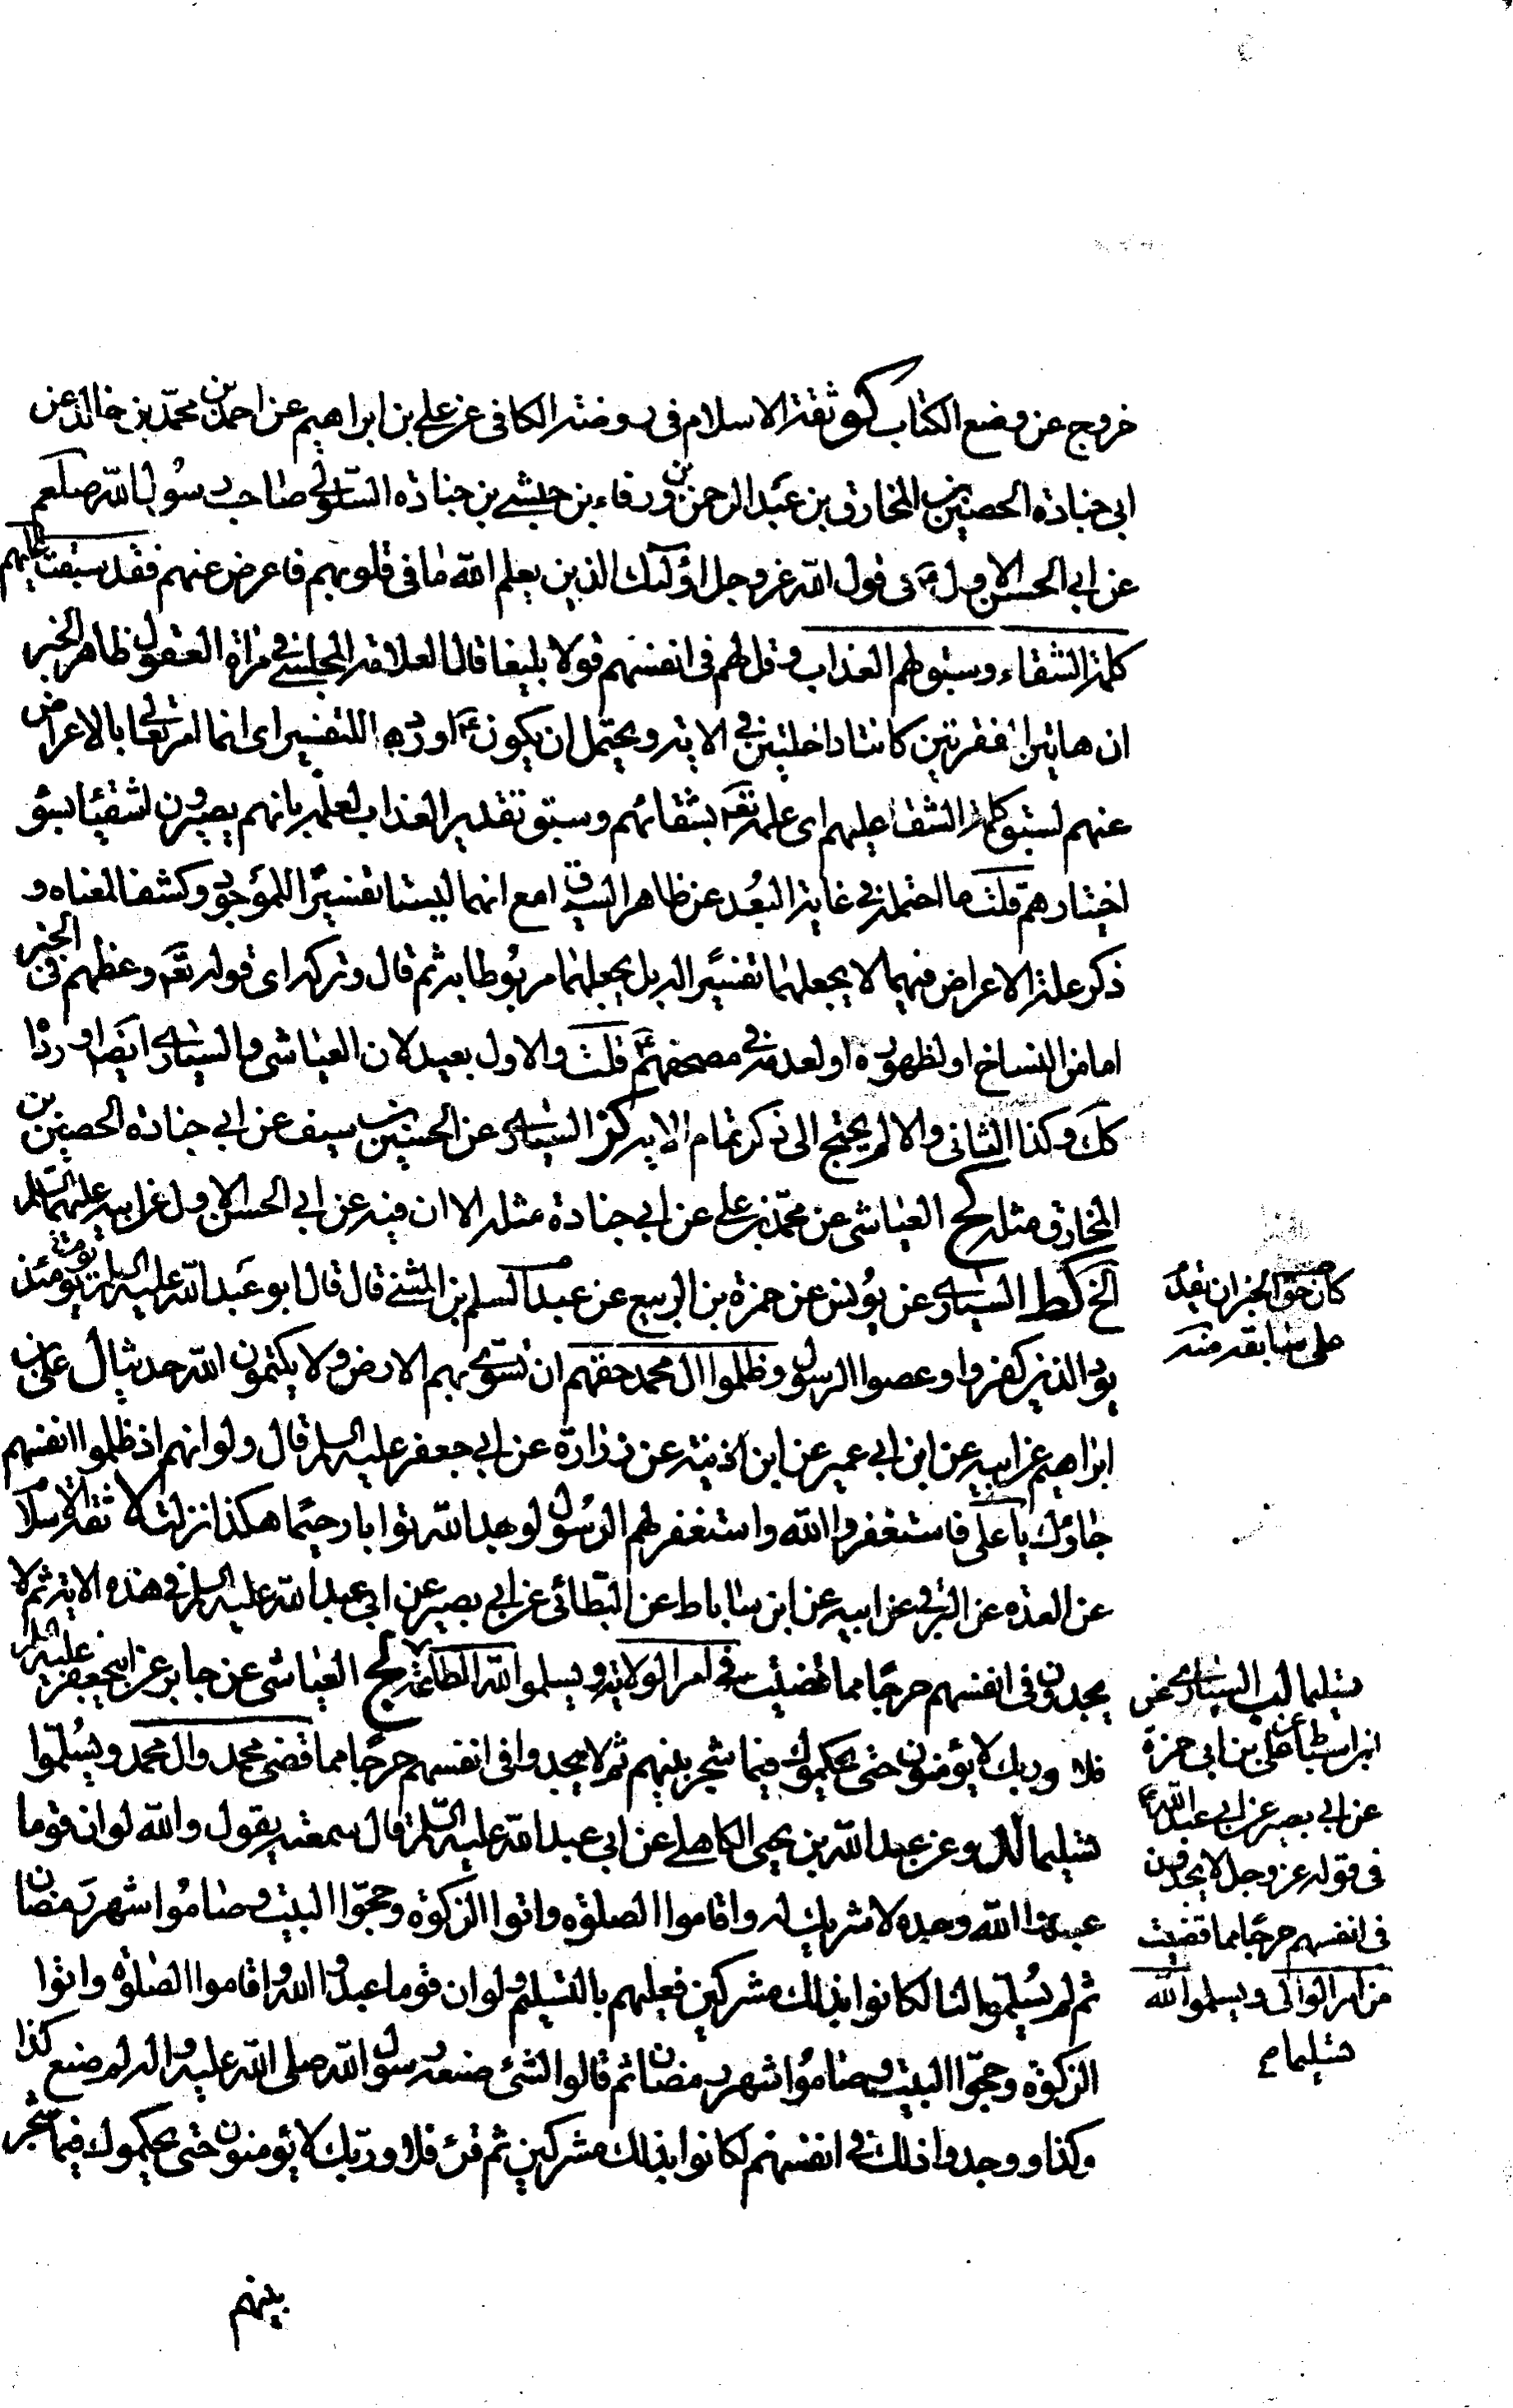 خروج عن وضع الكتاب كو ثقة الاسلام فى روضة الكافى عن على بن ابراهيم عن احمد بن محمد بن خالد عن
ابى جنادة الحصين بن المخارق بن عبد الرحمن بن ورقاء بن حبشى بن جنادة السلولى صاحب رسول الله صلعم
عن ابى الحسن الاول ع فى قول الله عز وجل اولئك الذين يعلم الله ما فى قلوبهم فاعرض عنهم فقد سبقت عليهم
كلمة الشقاء وسبق لهم العذاب وقل لهم فى انفسهم قولا بليغا قال العلامة المجلسى فى مراة العقول ظاهر الخبر
ان هاتين الفقرتين كانتا داخلتين فى الاية ويحتمل ان يكون ع اورده للتفسير اى انما امر تعالى بالاعراض
عنهم لسبق كلمة الشقا عليهم اى علمه تع بشقائهم وسبق تقدير العذاب لعلمه بانهم يصيرون اشقيا بسوء
اختيارهم قلت ما احتمله فى غاية البعد عن ظاهر السياق مع انهما ليستا تفسيرا للموجود وكشفا لمعناه و
ذكر علة الاعراض فيهما لا يجعلهما تفسيرا له بل يجعلهما مربوطا به ثم قال وتركه اى قوله تع وعظهم فى الخبر
اما من النساخ او لظهوره او لعدمه فى مصحفهم ع قلت والاول بعيد لان العياشى والسيارى ايضا اوردا
كك وكذا الثانى والا لم يحتج الى ذكر تمام الاية كز السيارى عن الحسين بن سيف عن ابى جنادة الحصين بن
المخارق مثله كح العياشى عن محمد بن على عن ابى جنادة مثله الا ان فيه عن ابى الحسن الاول عن ابيه عليهما السلام
الخ كط السيارى عن يونس عن حمزة بن الربيع عن عبد السلم بن المثنى قال قال ابو عبد الله عليه السلم يومئذ
يود الذين كفروا وعصوا الرسول وظلموا ال محمد حقهم ان تسوى بهم الارض ولا يكتمون الله حديثا ل على بن
ابراهيم عن ابيه عن ابن ابى عمير عن ابن اذينه عن زرارة عن ابى جعفر عليه السلم قال ولو انهم اذ ظلموا انفسهم
جاؤك يا على فاستغفروا الله واستغفر لهم الرسول لوجدوا الله توابا رحيما هكذا نزلت لا ثقة الاسلام
عن العدة عن البرقى عن ابيه عن ابن ساباط عن البطائنى عن ابى بصير عن ابى عبد الله عليه السلم فى هذه الاية ثم لا
يجدون فى انفسهم حرجا مما قضيت فى امر الولاية ويسلموا لله الطاعة لج العياشى عن جابر عن ابيجعفر عليه السلم
فلا وربك لا يؤمنون حتى يحكموك فيما شجر بينهم ثم لا يجدوا فى انفسهم حرجا مما قضى محمد وال محمد ويسلموا
تسليما لد وعن عبد الله بن يحيى الكاهلى عن ابى عبد الله عليه السلم قال سمعته يقول والله لو ان قوما
عبدوا الله وحده لا شريك له واقاموا الصلوة واتوا الزكوة وحجوا البيت وصاموا شهر رمضان
ثم لم يسلموا لنا لكانوا بذلك مشركين فعليهم بالتسليم ولو ان قوما عبدوا الله واقاموا الصلوة واتوا
الزكوة وحجوا البيت وصاموا شهر رمضان ثم قالوا لشئ صنعه رسول الله صلى الله عليه واله لم صنع كذا
وكذا ووجدوا ذلك فى انفسهم لكانوا بذلك مشركين ثم قرء فلا وربك لا يؤمنون حتى يحكموك فيما شجر
بينهم
كان حق الخبر ان يقدم
على سابقه منه
تسليما لب السيارى عن
ابن اسباط عن على بن ابى حمزة
عن ابى بصير عن ابى عبد الله ع
فى قوله عز وجل لا يجدون
فى انفسهم حرجا مما قضيت
من امر الوالى ويسلموا لله
تسليما م